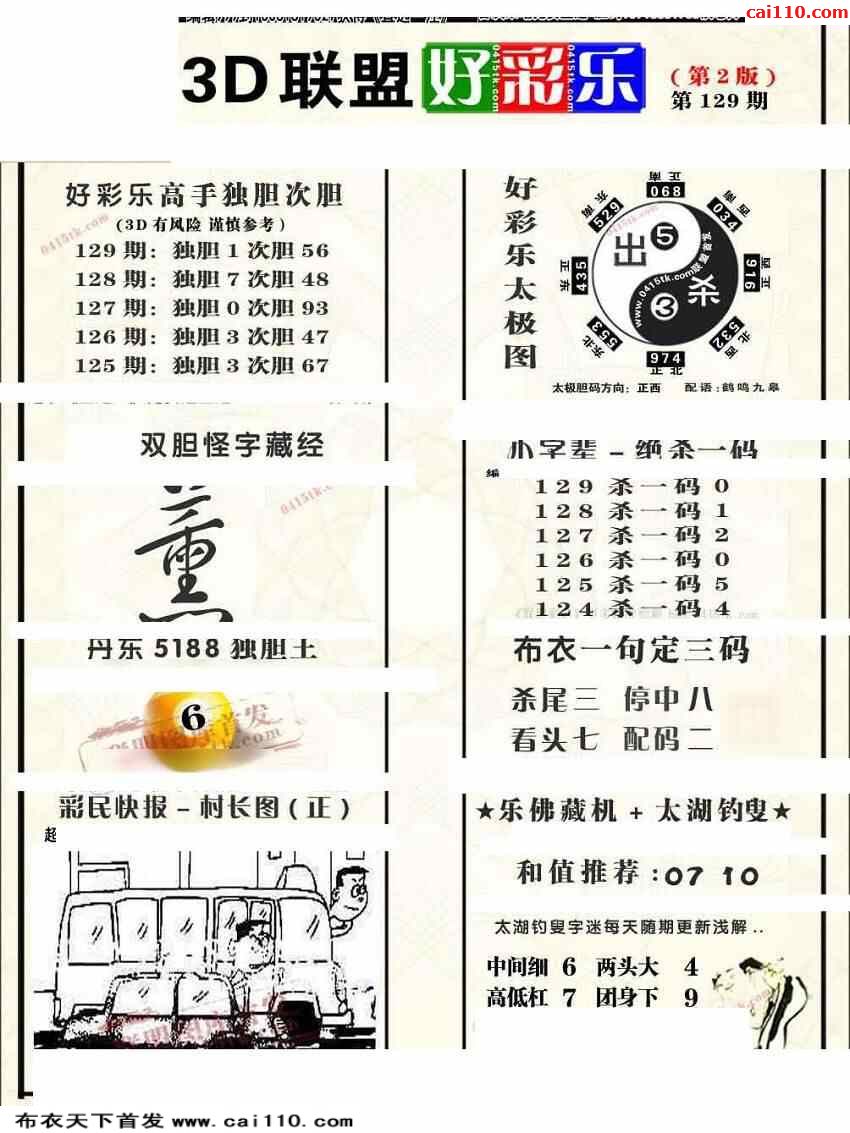 cai110.com
3D 联盟 好彩乐
0415tk.com 0415tk.com 0415tk.com
(第2版)
第129期
好彩乐高手独胆次胆
(3D有风险 谨慎参考)
0415tk.com
129期: 独胆1次胆56
128期: 独胆7次胆48
127期: 独胆0次胆93
126期: 独胆3次胆47
125期: 独胆3次胆67
好彩乐太极图
正南 068
东南 529
西南 034
正东 435
正西 916
东北 553
西北 532
正北 974
出 5
杀 3
www.0415tk.com联盟首发
0415tk.com
太极胆码方向: 正西 配语: 鹤鸣九皋
双胆怪字藏经
0415tk.com
小字辈-绝杀一码
编
129杀一码0
128杀一码1
127杀一码2
126杀一码0
125杀一码5
124杀一码4
丹东5188独胆王
6
布衣一句定三码
杀尾三 停中八
看头七 配码二
彩民快报-村长图(正)
超
★乐佛藏机+太湖钓叟★
和值推荐:07 10
太湖钓叟字迷每天随期更新浅解..
中间细 6 两头大 4
高低杠 7 团身下 9
布衣天下首发 www.cai110.com